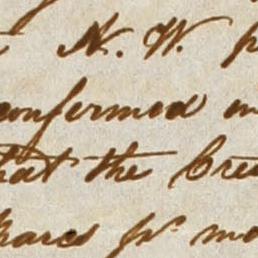 N. W.
confermed
hat the Cre
hares pr mo